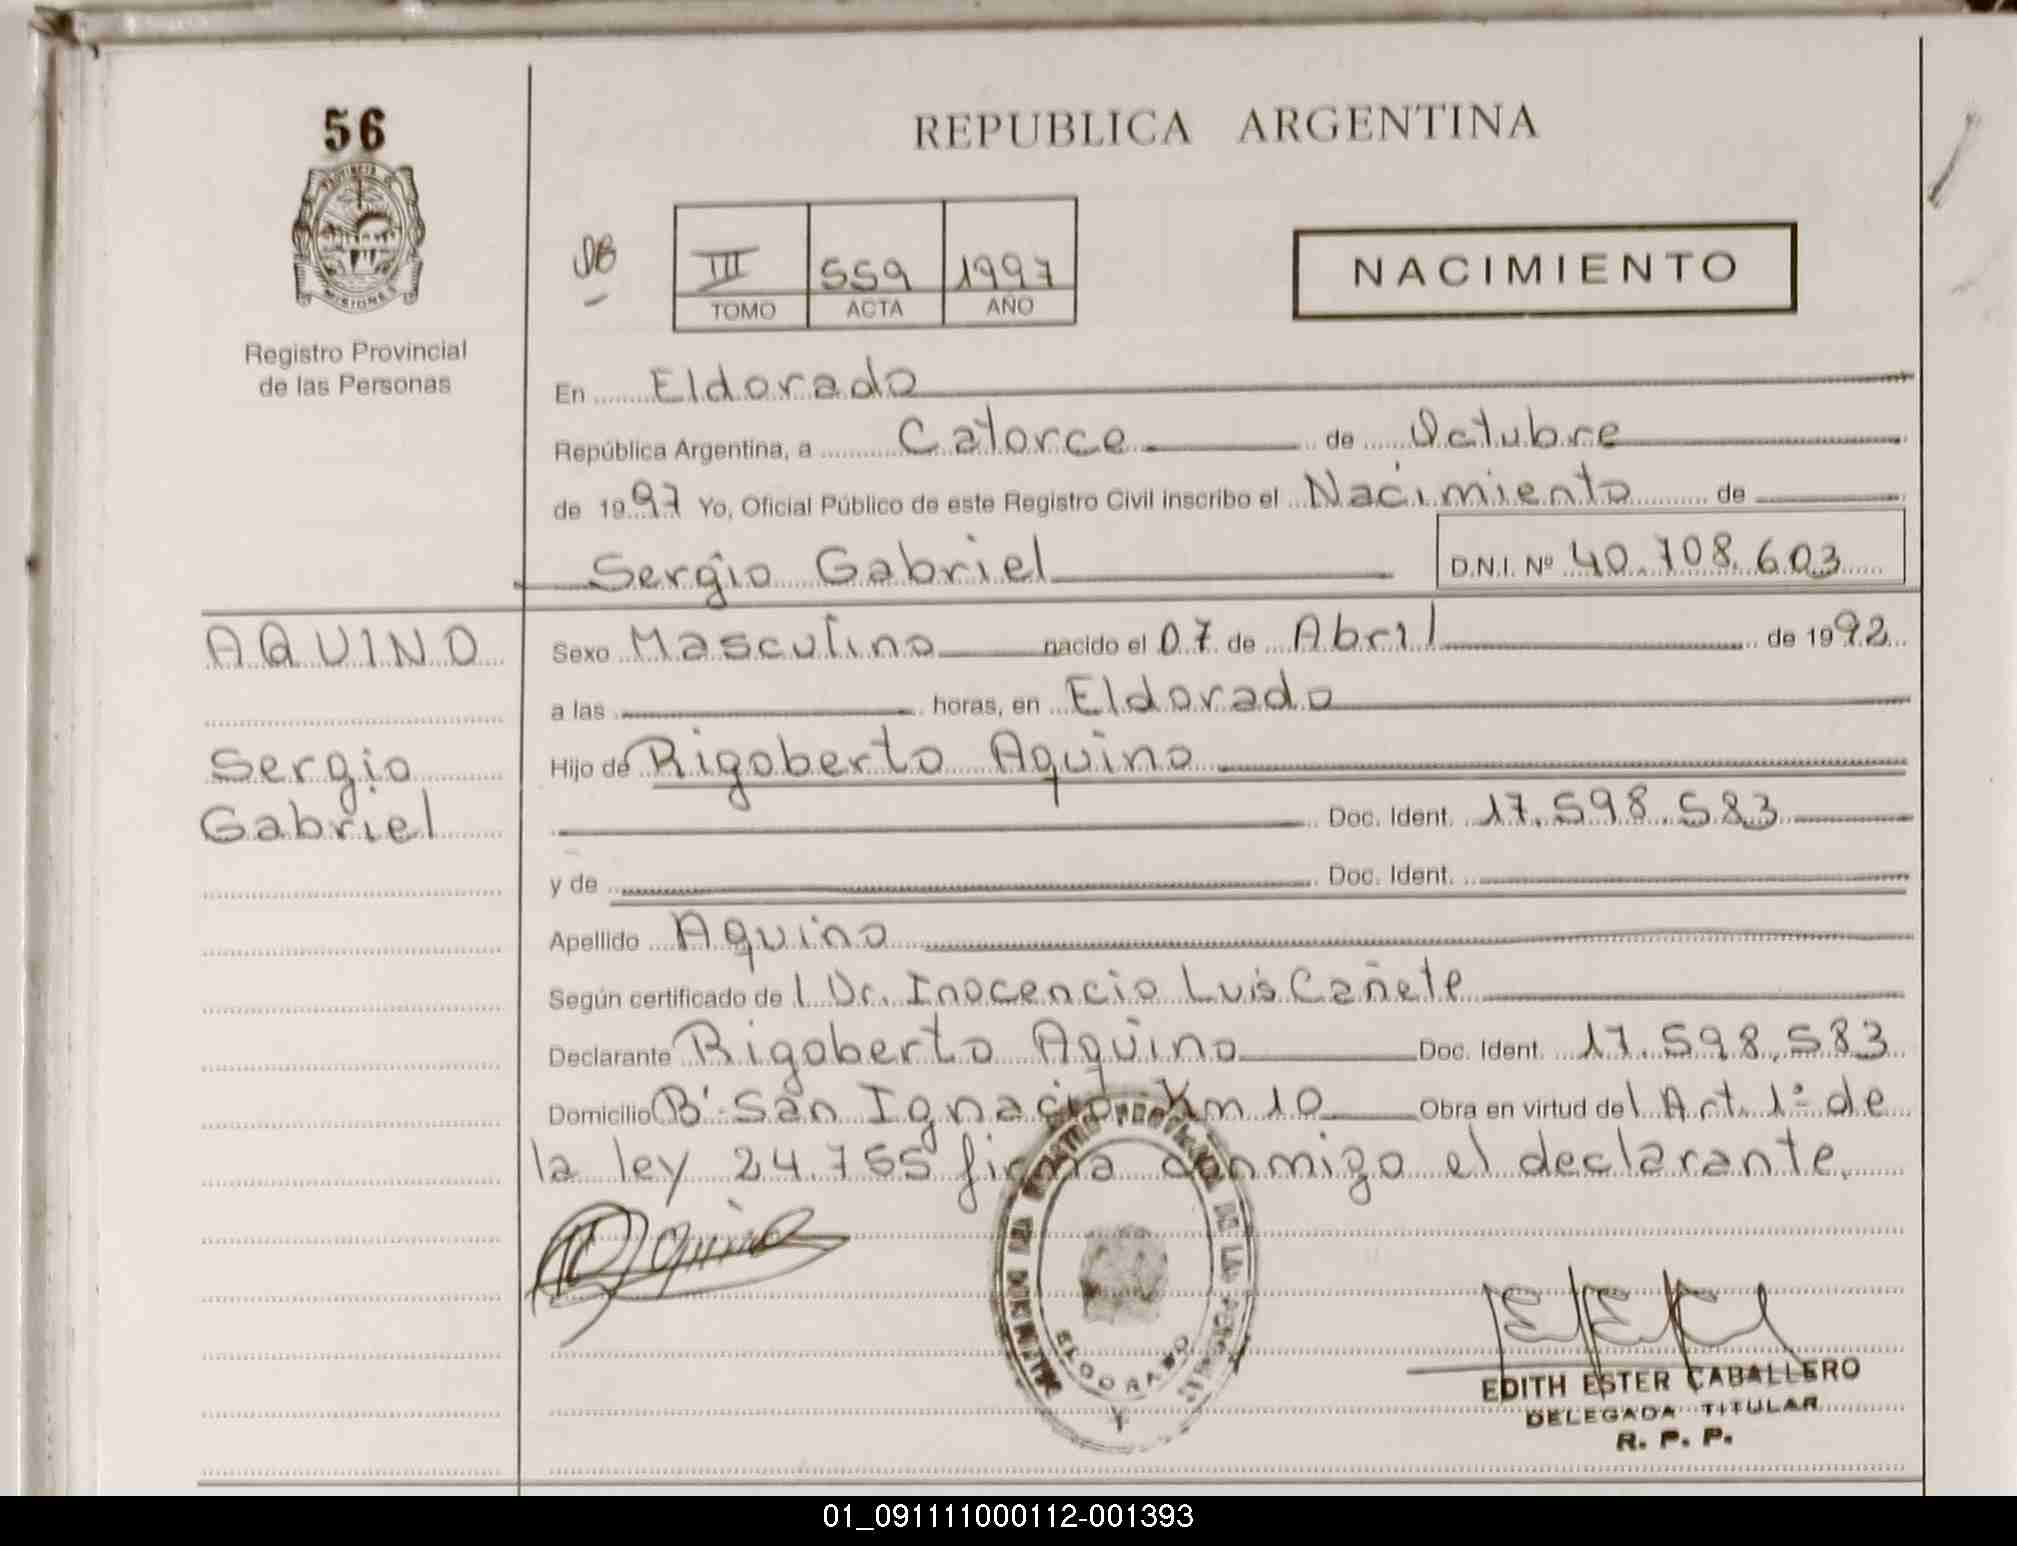 56
REPUBLICA ARGENTINA
III 559 1997
TOMO ACTA AÑO
NACIMIENTO
Registro Provincial
de las Personas
En Eldorado
República Argentina, a Catorce de Octubre
de 1997 Yo, Oficial Público de este Registro Civil inscribo el Nacimiento de
Sergio Gabriel D.N.I. Nº 40.708.603
AQUINO
Sergio
Gabriel
Sexo Masculino nacido el 07 de Abril de 1992
a las horas, en Eldorado
Hijo de Rigoberto Aquino
Doc. Ident. 17.598.583
y de Doc. Ident.
Apellido Aquino
Según certificado de l Dr. Inocencio Luis Cañete
Declarante Rigoberto Aquino Doc. Ident. 17.598.583
Domicilio Bº San Ignacio Km 10 Obra en virtud del Art. 1º de
la ley 24.755 firma conmigo el declarante.
Aquino
ELDORADO
EDITH ESTER CABALLERO
DELEGADA TITULAR
R. P. P.
01_091111000112-001393